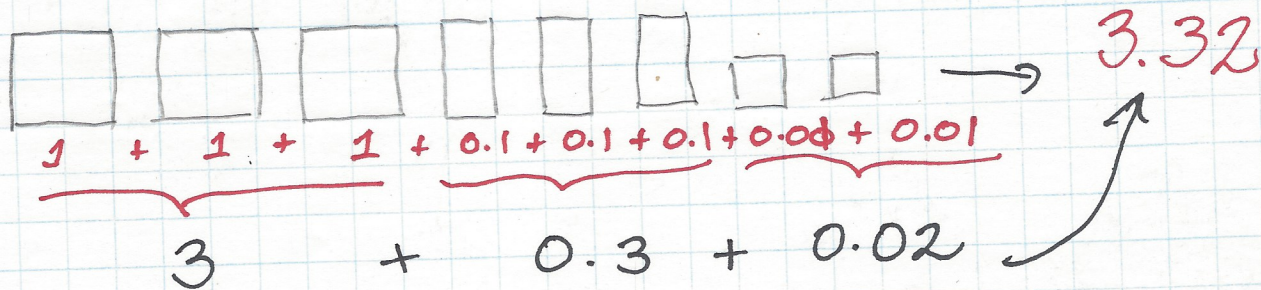 3.32
1 + 1 + 1 + 0.1 + 0.1 + 0.1 + 0.01 + 0.01
3 + 0.3 + 0.02